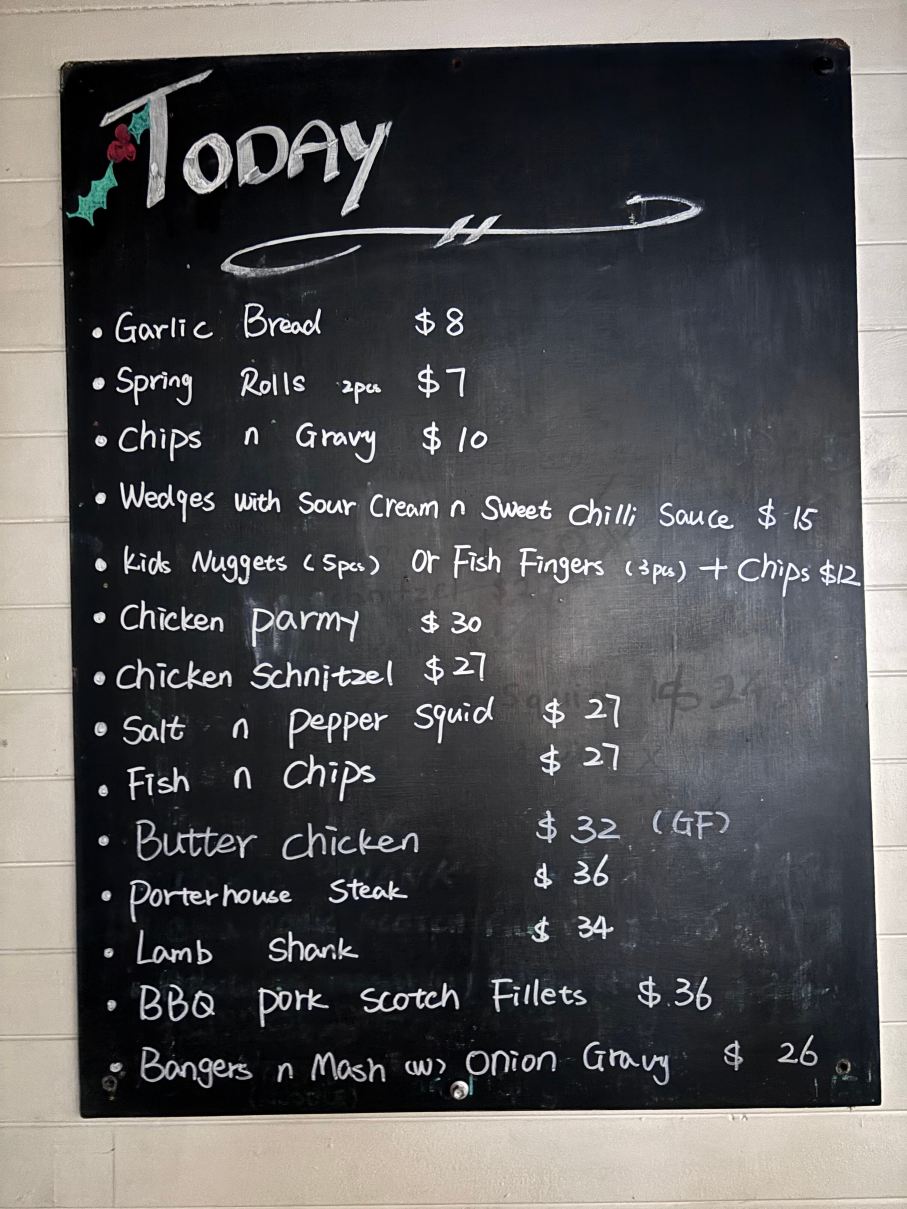 TODAY
• Garlic Bread $8
• Spring Rolls 2pcs $7
• Chips n Gravy $10
• Wedges with Sour Cream n Sweet Chilli Sauce $15
• Kids Nuggets (5pcs) Or Fish Fingers (3pcs) + Chips $12
• Chicken Parmy $30
• Chicken Schnitzel $27
• Salt n Pepper Squid $27
• Fish n Chips $27
• Butter Chicken $32 (GF)
• Porterhouse Steak $36
• Lamb Shank $34
• BBQ Pork Scotch Fillets $36
• Bangers n Mash (W) Onion Gravy $26